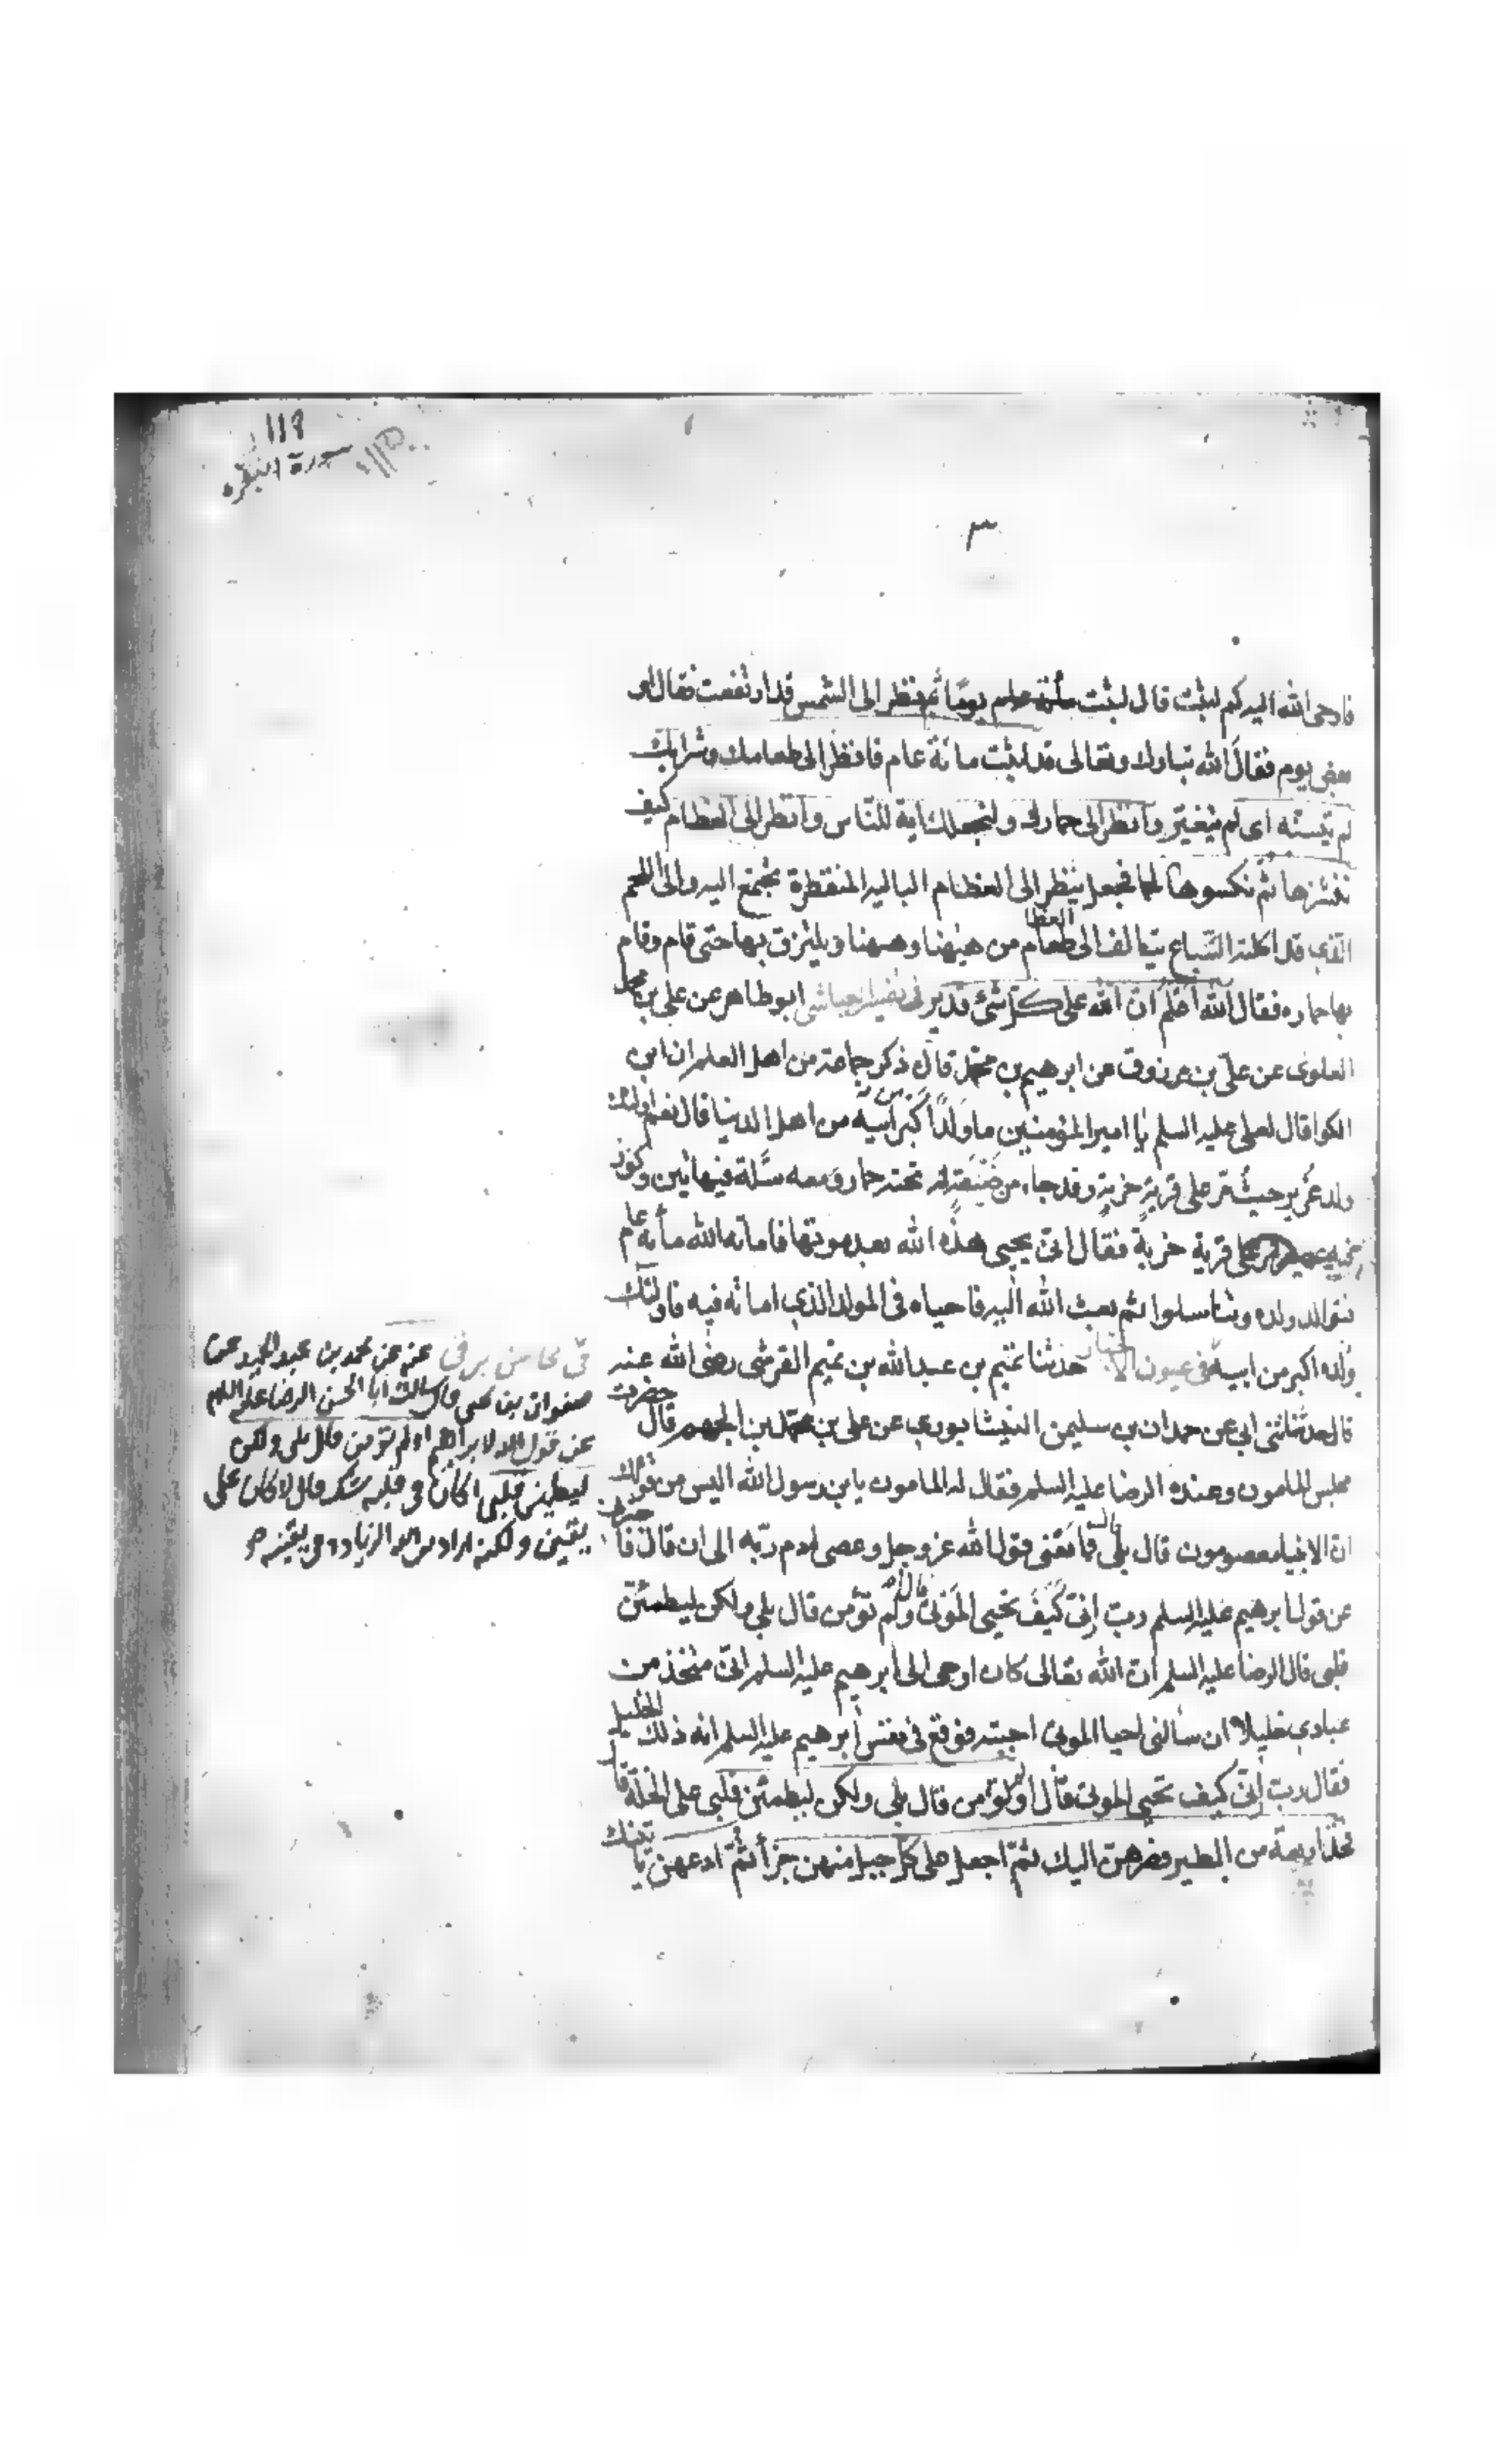 ١١٩
سورة البقره
٣
فاوحى الله اليه كم لبثت قال لبثت يومًا ثم نظر الى الشمس قد ارتفعت فقال او
بعض يوم فقال الله تبارك وتعالى قد لبثت مائة عام فانظر الى طعامك وشرابك
لم يتسنه اى لم يتغير وانظر الى حمارك ولنجعلك اية للناس وانظر الى العظام كيف
ننشزها ثم نكسوها لحما فجعل ينظر الى العظام الباليه المنفطرة تجتمع اليه والى اللحم
الذى قد اكلته السباع يتالف الى العظام من هيهنا وهيهنا ويلتزق بها حتى قام وقام
بها حماره فقال الله اعلم ان الله على كل شئ قدير فى تفسير العياشى ابو طاهر عن على بن محمد
العلوى عن على بن مرزوق عن ابرهيم بن محمد قال ذكر جماعة من اهل العلم ان ابن
الكوا قال لعلى عليه السلم يا امير المؤمنين ما ولد اكبر من ابيه من اهل الدنيا قال نعم اولئك
ولد عزير حيث مر على قرية خربة وقد جاء من ضيعة له تحته حمار ومعه سلة فيها تين وكوز
على قرية خربة فقال انى يحيى هذه الله بعد موتها فاماته الله مأئة عام
فتوالد ولده وتناسلوا ثم بعث الله اليه فاحياه فى المولد الذى اماته فيه فاولئك
ولده اكبر من ابيهم فى عيون الاخبار حدثنا تميم بن عبد الله بن تميم القرشى رضى الله عنه
قال حدثنى ابى عن حمدان بن سليمن النيشابورى عن على بن محمد بن الجهم قال حضرت
مجلس المامون وعنده الرضا عليه السلم فقال له المامون يابن رسول الله اليس من قولك
ان الانبياء معصومون قال بلى قال فما تعنى بقول الله عز وجل وعصى ادم ربه الى ان قال فا
عن قول ابرهيم عليه السلم رب ارنى كيف تحيى الموتى قال اولم تؤمن قال بلى ولكن ليطمئن
قلبى قال الرضا عليه السلم ان الله تعالى كان اوحى الى ابرهيم عليه السلم انى متخذ من
عبادى خليلا ان سألنى احيا الموتى اجبته فوقع فى نفس ابرهيم عليه السلم انه ذلك الخليل
فقال رب ارنى كيف تحيى الموتى قال اولم تؤمن قال بلى ولكن ليطمئن قلبى على الخلة قا
فخذ اربعة من الطير فصرهن اليك ثم اجعل على كل جبل منهن جزأ ثم ادعهن يا تينك
فى محاسن برقى عنه عن محمد بن عبد الحميد عن
صفوان بن يحيى قال سالت ابا الحسن الرضا عليه السلم
عن قول الله لابراهيم اولم تؤمن قال بلى ولكن
ليطمئن قلبى اكان فى قلبه شك قال لا كان على
يقين ولكنه اراد من الله الزياده فى يقينه